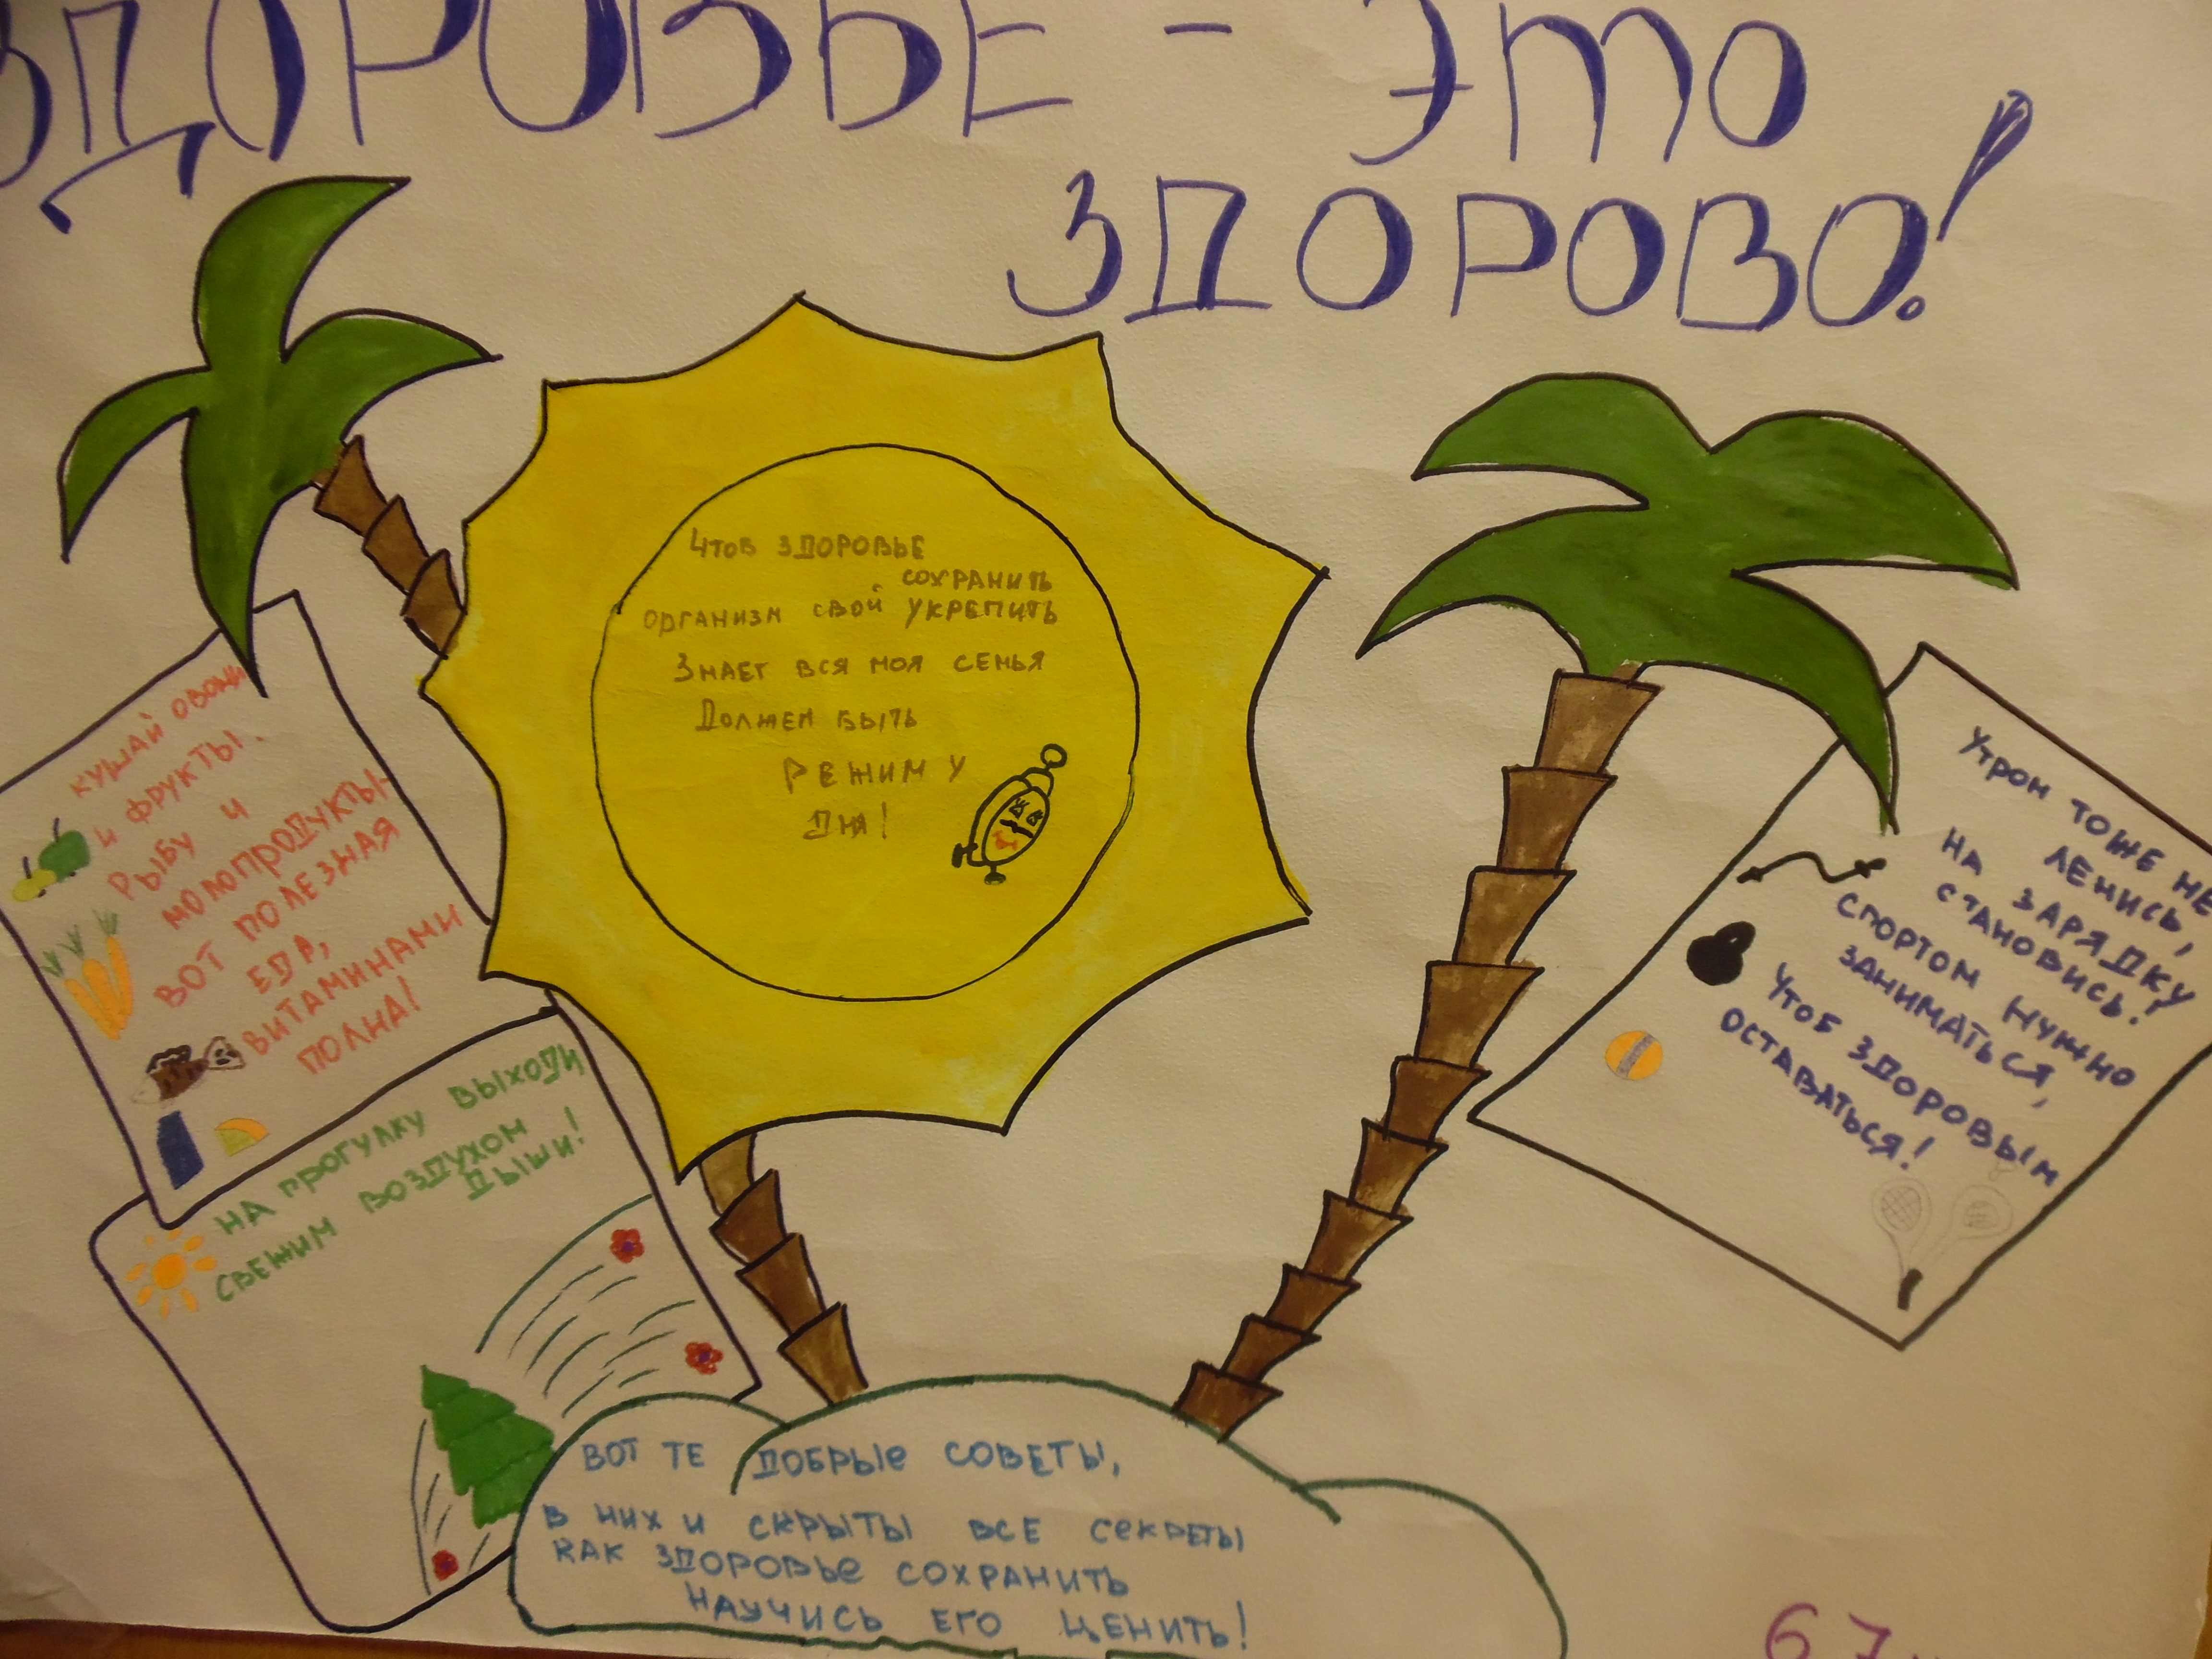 ЗДОРОВЬЕ - ЭТО
ЗДОРОВО!
Чтоб ЗДОРОВЬЕ
СОХРАНИТЬ
ОРГАНИЗМ СВОЙ УКРЕПИТЬ
ЗНАЕТ ВСЯ МОЯ СЕМЬЯ
ДОЛЖЕН БЫТЬ
РЕЖИМ У
ДНЯ!
КУШАЙ ОВОЩИ
И ФРУКТЫ.
РЫБУ И
МОЛОПРОДУКТЫ-
ВОТ ПОЛЕЗНАЯ
ЕДА,
ВИТАМИНАМИ
ПОЛНА!
НА ПРОГУЛКУ ВЫХОДИ,
СВЕЖИМ ВОЗДУХОМ
ДЫШИ!
УТРОМ ТОЖЕ НЕ
ЛЕНИСЬ,
НА ЗАРЯДКУ
СТАНОВИСЬ!
СПОРТОМ НУЖНО
ЗАНИМАТЬСЯ,
ЧТОБ ЗДОРОВЫМ
ОСТАВАТЬСЯ!
ВОТ ТЕ ДОБРЫЕ СОВЕТЫ,
В НИХ И СКРЫТЫ ВСЕ СЕКРЕТЫ
КАК ЗДОРОВЬЕ СОХРАНИТЬ
НАУЧИСЬ ЕГО ЦЕНИТЬ!
67